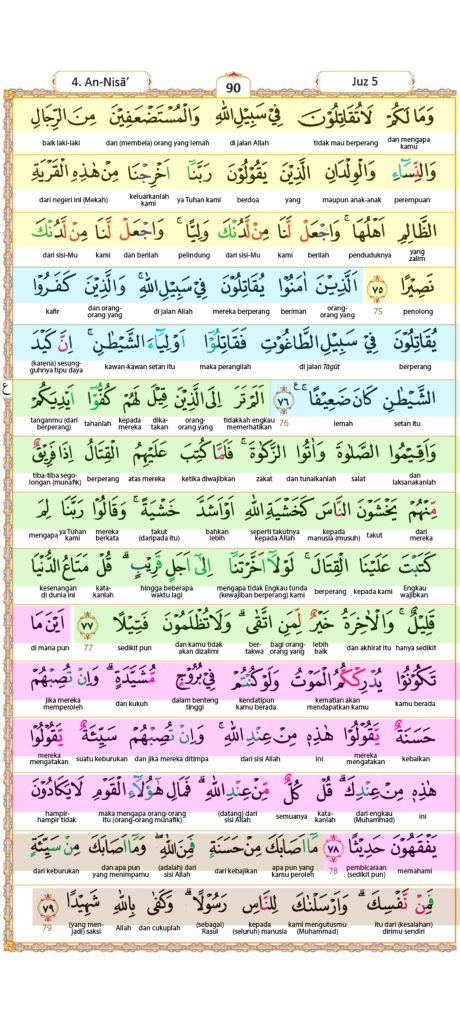 4. An-Nisā’
90
Juz 5
وَمَا لَكُمْ لَا تُقَاتِلُوْنَ فِيْ سَبِيْلِ اللّٰهِ وَالْمُسْتَضْعَفِيْنَ مِنَ الرِّجَالِ
baik laki-laki dan (membela) orang yang lemah di jalan Allah tidak mau berperang dan mengapa kamu
وَالنِّسَاۤءِ وَالْوِلْدَانِ الَّذِيْنَ يَقُوْلُوْنَ رَبَّنَآ اَخْرِجْنَا مِنْ هٰذِهِ الْقَرْيَةِ
dari negeri ini (Mekah) keluarkanlah kami ya Tuhan kami berdoa yang maupun anak-anak perempuan
الظَّالِمِ اَهْلُهَاۚ وَاجْعَلْ لَّنَا مِنْ لَّدُنْكَ وَلِيًّاۚ وَاجْعَلْ لَّنَا مِنْ لَّدُنْكَ
dari sisi-Mu kami dan berilah pelindung dari sisi-Mu kami berilah penduduknya yang zalim
نَصِيْرًا ٧٥ اَلَّذِيْنَ اٰمَنُوْا يُقَاتِلُوْنَ فِيْ سَبِيْلِ اللّٰهِۚ وَالَّذِيْنَ كَفَرُوْا
kafir dan orang-orang yang di jalan Allah mereka berperang beriman orang-orang yang 75 penolong
يُقَاتِلُوْنَ فِيْ سَبِيْلِ الطَّاغُوْتِ فَقَاتِلُوْٓا اَوْلِيَاۤءَ الشَّيْطٰنِۚ اِنَّ كَيْدَ
(karena) sesung-guhnya tipu daya kawan-kawan setan itu maka perangilah di jalan Tāgūt berperang
ع
الشَّيْطٰنِ كَانَ ضَعِيْفًاۚ ٧٦ اَلَمْ تَرَ اِلَى الَّذِيْنَ قِيْلَ لَهُمْ كُفُّوْٓا اَيْدِيَكُمْ
tanganmu (dari berperang) tahanlah kepada mereka dika-takan orang-orang yang tidakkah engkau memerhatikan 76 lemah setan itu
وَاَقِيْمُوا الصَّلٰوةَ وَاٰتُوا الزَّكٰوةَۚ فَلَمَّا كُتِبَ عَلَيْهِمُ الْقِتَالُ اِذَا فَرِيْقٌ
tiba-tiba sego-longan (munafik) berperang atas mereka ketika diwajibkan zakat dan tunaikanlah salat dan laksanakanlah
مِّنْهُمْ يَخْشَوْنَ النَّاسَ كَخَشْيَةِ اللّٰهِ اَوْ اَشَدَّ خَشْيَةًۚ وَقَالُوْا رَبَّنَا لِمَ
mengapa ya Tuhan kami mereka berkata takut (daripada itu) bahkan lebih seperti takutnya kepada Allah kepada manusia (musuh) takut dari mereka
كَتَبْتَ عَلَيْنَا الْقِتَالَۚ لَوْلَآ اَخَّرْتَنَآ اِلٰٓى اَجَلٍ قَرِيْبٍۗ قُلْ مَتَاعُ الدُّنْيَا
kesenangan di dunia ini kata-kanlah hingga beberapa waktu lagi mengapa tidak Engkau tunda (kewajiban berperang) kami berperang kepada kami Engkau wajibkan
قَلِيْلٌۚ وَالْاٰخِرَةُ خَيْرٌ لِّمَنِ اتَّقٰىۗ وَلَا تُظْلَمُوْنَ فَتِيْلًا ٧٧ اَيْنَ مَا
di mana pun 77 sedikit pun dan kamu tidak akan dizalimi ber-takwa bagi orang-orang yang lebih baik dan akhirat itu hanya sedikit
تَكُوْنُوْا يُدْرِكْكُّمُ الْمَوْتُ وَلَوْ كُنْتُمْ فِيْ بُرُوْجٍ مُّشَيَّدَةٍۗ وَاِنْ تُصِبْهُمْ
jika mereka memperoleh dan kukuh dalam benteng tinggi kendatipun kamu berada kematian akan mendapatkan kamu kamu berada
حَسَنَةٌ يَّقُوْلُوْا هٰذِهٖ مِنْ عِنْدِ اللّٰهِۚ وَاِنْ تُصِبْهُمْ سَيِّئَةٌ يَّقُوْلُوْا
mereka mengatakan suatu keburukan dan jika mereka ditimpa dari sisi Allah ini mereka mengatakan kebaikan
هٰذِهٖ مِنْ عِنْدِكَۗ قُلْ كُلٌّ مِّنْ عِنْدِ اللّٰهِۗ فَمَالِ هٰٓؤُلَاۤءِ الْقَوْمِ لَا يَكَادُوْنَ
hampir-hampir tidak maka mengapa orang-orang itu (orang-orang munafik) (datang) dari sisi Allah semuanya kata-kanlah dari engkau (Muhammad) ini
يَفْقَهُوْنَ حَدِيْثًا ٧٨ مَآ اَصَابَكَ مِنْ حَسَنَةٍ فَمِنَ اللّٰهِۖ وَمَآ اَصَابَكَ مِنْ سَيِّئَةٍ
dari keburukan dan apa pun yang menimpamu (adalah) dari sisi Allah dari kebajikan apa pun yang kamu peroleh 78 pembicaraan (sedikit pun) memahami
فَمِنْ نَّفْسِكَۗ وَاَرْسَلْنٰكَ لِلنَّاسِ رَسُوْلًاۗ وَكَفٰى بِاللّٰهِ شَهِيْدًا ٧٩
79 (yang men-jadi) saksi Allah dan cukuplah (sebagai) Rasul kepada (seluruh) manusia kami mengutusmu (Muhammad) itu dari (kesalahan) dirimu sendiri